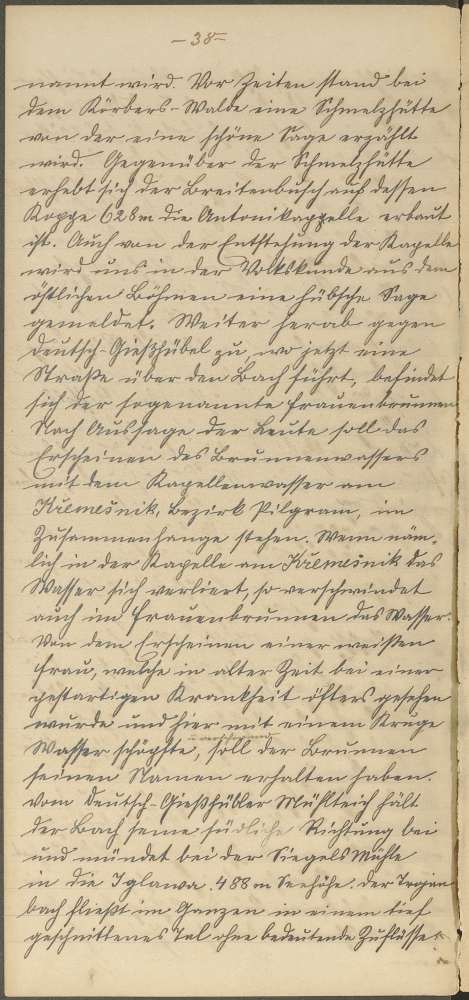 -38-
nannt wird. Vor Zeiten stand bei
dem Körbers-Walde eine Schmelzhütte
von der eine schöne Sage erzählt
wird. Gegenüber der Schmelzhütte
erhebt sich der Breitenbusch auf dessen
Koppe 628m die Antonikappelle erbaut
ist. Auch von der Entstehung der Kapelle
wird uns in der Volkskunde aus dem
östlichen Böhmen eine hübsche Sage
gemeldet. Weiter herab gegen
Deutsch-Gießhübel zu, wo jetzt eine
Straße über den Bach führt, befindet
sich der sogenannte Frauenbrunnen
Nach Aussage der Leute soll das
Erscheinen des Brunnenwassers
mit dem Kapellenwasser am
Křemešnik, Bezirk Pilgram, im
Zusammenhange stehen. Wenn näm-
lich in der Kapelle am Křemešnik das
Wasser sich verliert, so verschwindet
auch im Frauenbrunnen das Wasser.
Von dem Erscheinen einer weißen
Frau, welche in alter Zeit bei einer
pestartigen Krankheit öfters gesehen
wurde und hier mit einem Kruge
Wasser schöpfte, soll der Brunnen
seinen Namen erhalten haben.
Vom Deutsch-Gießhübler Mühlteich hält
der Bach seine südliche Richtung bei
und mündet bei der Siegels Mühle
in die Iglawa 488m Seehöhe. Der
bach fließt im Ganzen in einem tief
geschnittenes Tal ohne bedeutende Zuflüsse